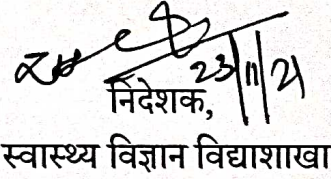 23/11/21
निदेशक,
स्वास्थ्य विज्ञान विद्याशाखा